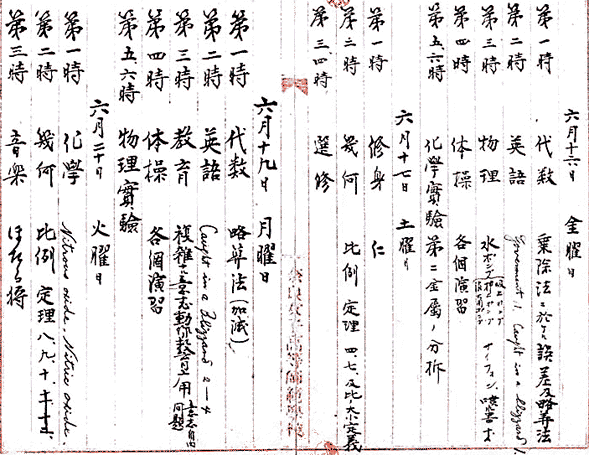 六月十六日 金曜日
第一時 代数 乗除法ニ於ケル誤差及略算法
第二時 英語 Government 1, Caught in a Blizzard 1
第三時 物理 水ポンプ サイフォン
第四時 体操 各個演習
第五六時 化学実験 第二金属ノ分析
六月十七日 土曜日
第一時 修身 仁
第二時 幾何 比例 定理 四、七、及比ノ大小定義
第三、四時 選修
六月十九日 月曜日
第一時 代数 略算法(加減)
第二時 英語 Caught in a Blizzard 2—4
第三時 教育 複雑 意志動作 教育上ノ用 意志自由問題
第四時 体操 各個演習
第五六時 物理實驗
六月二十日 火曜日
第一時 化學 Nitrous oxide, Nitric oxide,
第二時 幾何 比例 定理 八、九、十、
第三時 音楽